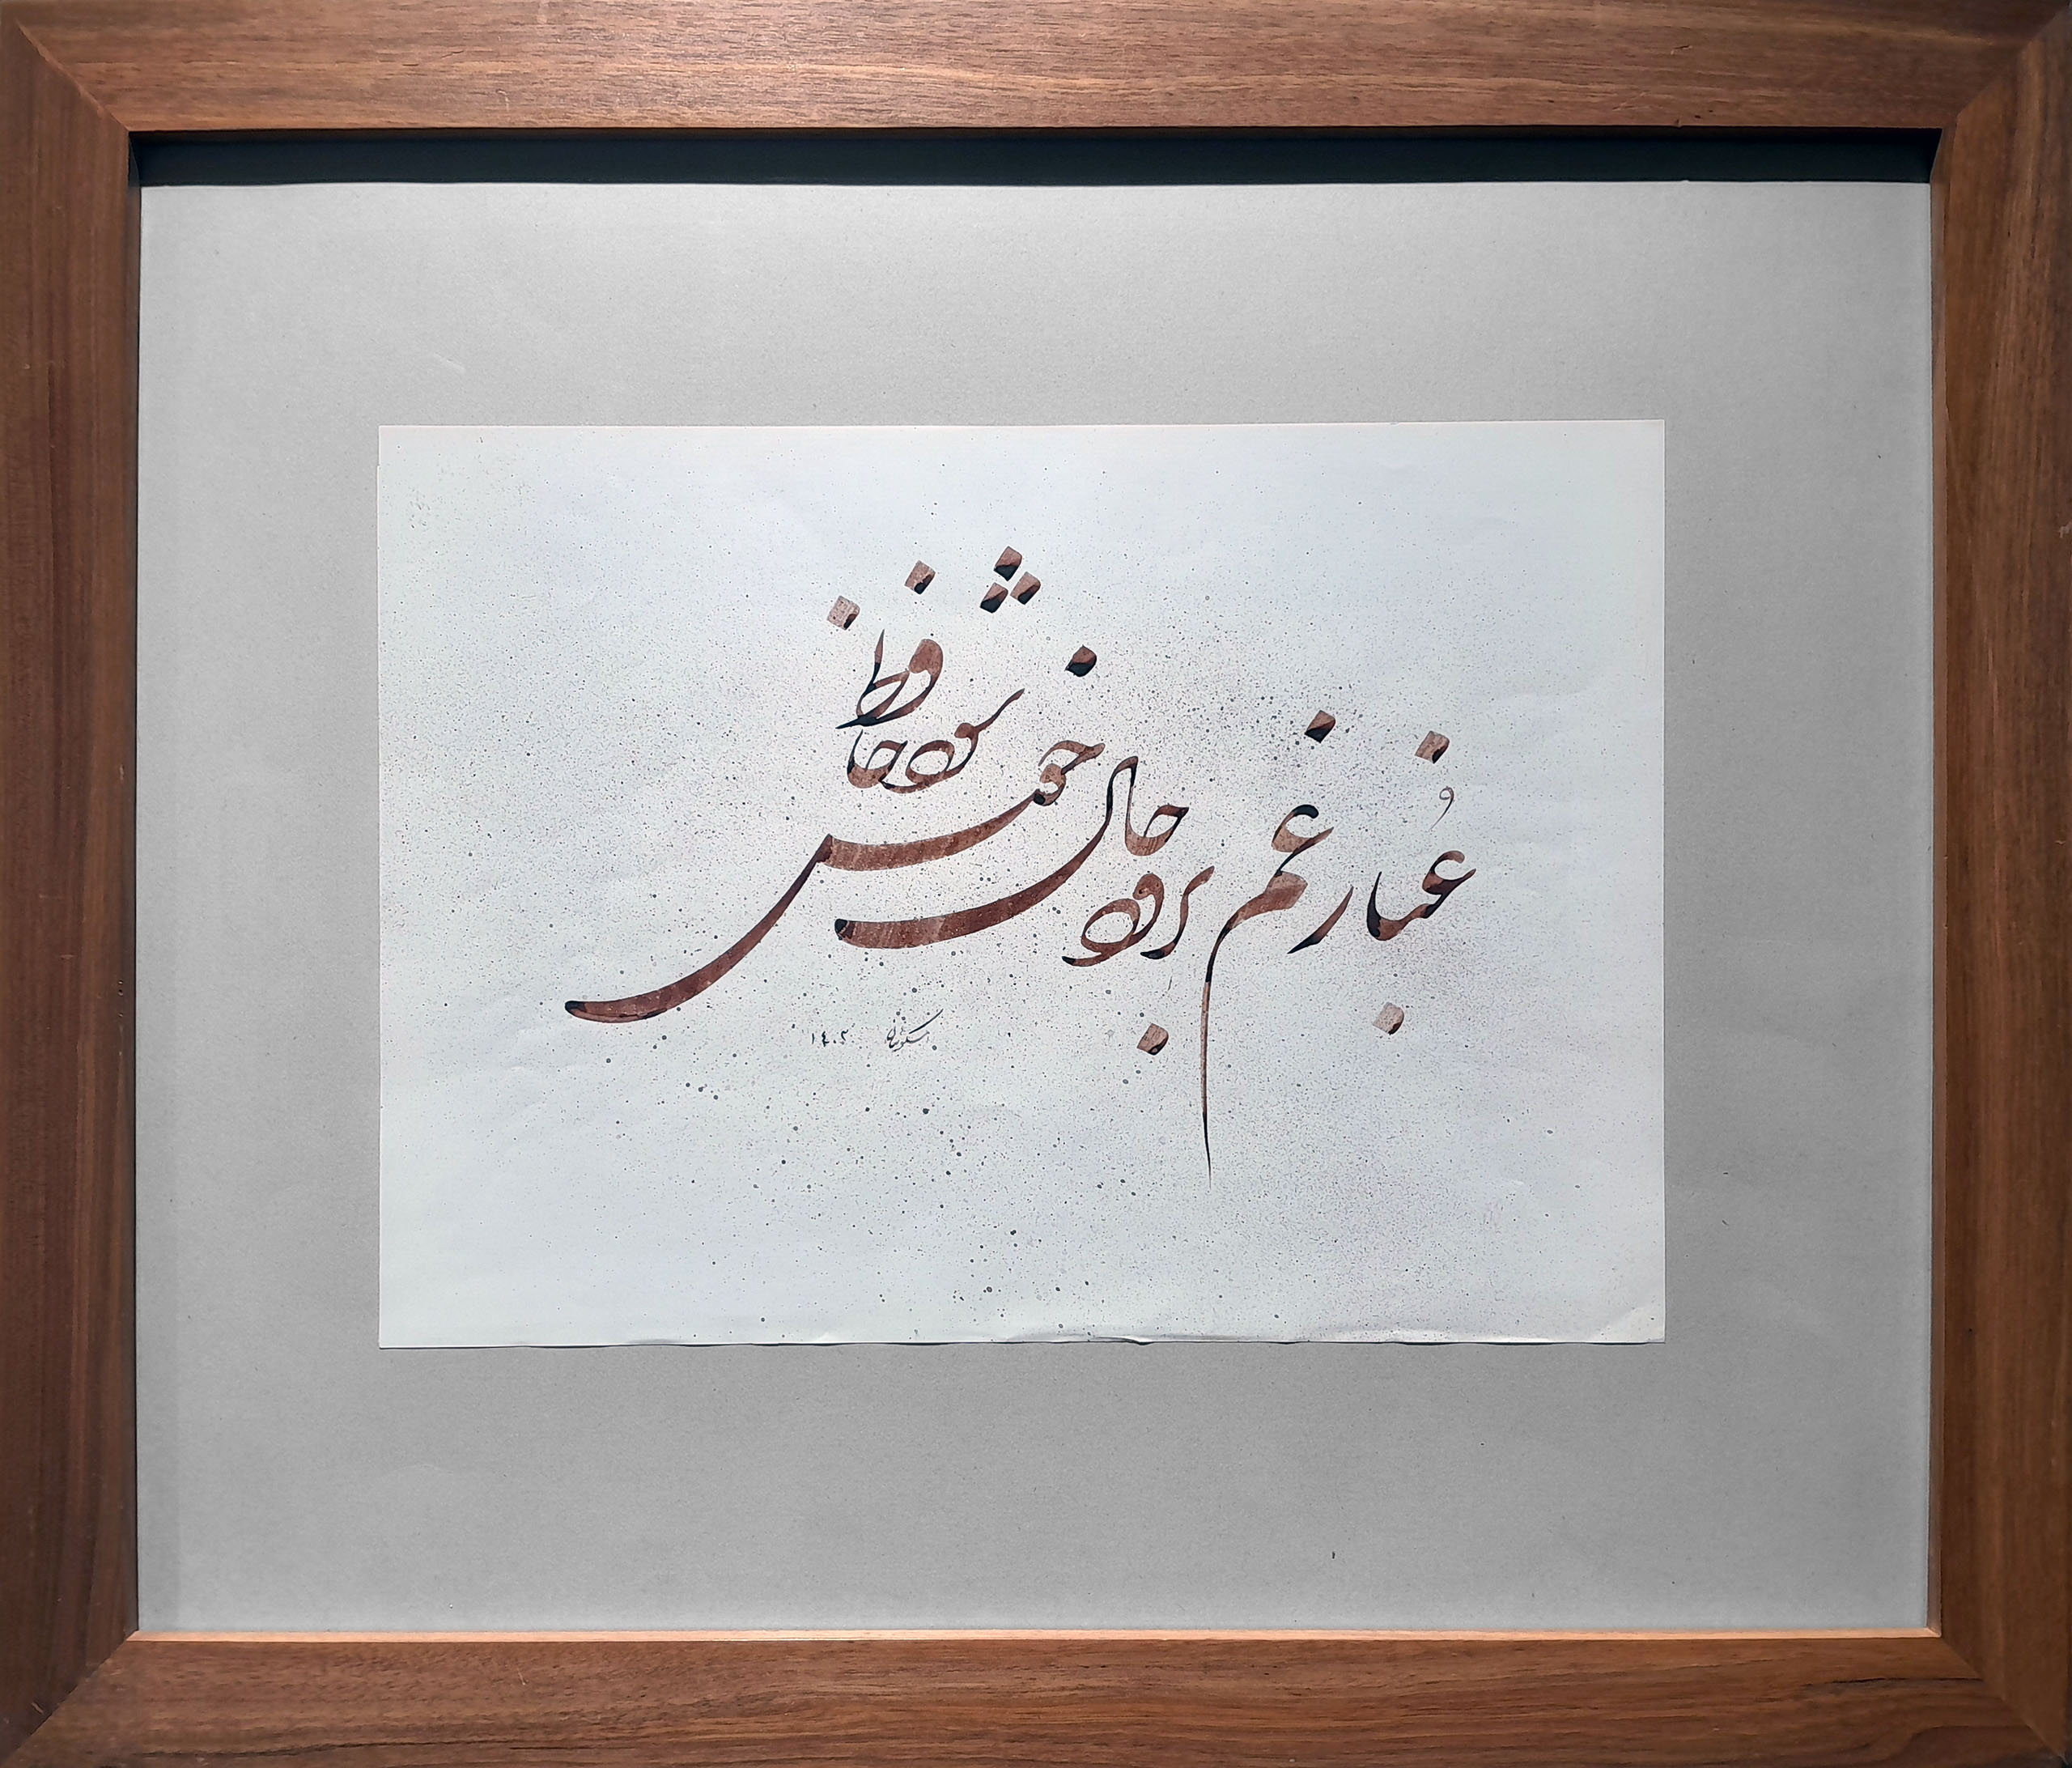 غُبار غم برود حال خوش شود حافظ
١٤٠٢